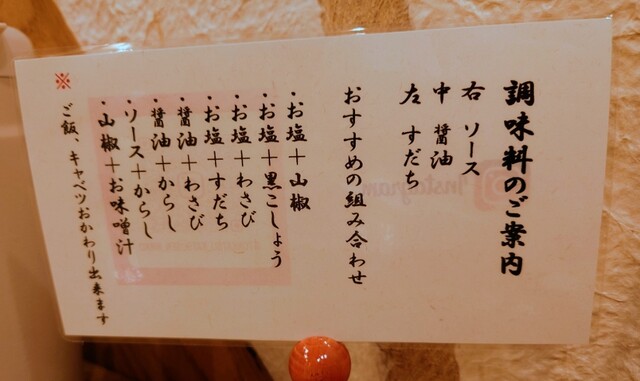 調味料のご案内
右 ソース
中 醤油
左 すだち
おすすめの組み合わせ
・お塩＋山椒
・お塩＋黒こしょう
・お塩＋わさび
・お塩＋すだち
・醤油＋わさび
・醤油＋からし
・ソース＋からし
・山椒＋お味噌汁
※ ご飯、キャベツおかわり出来ます
Instagram